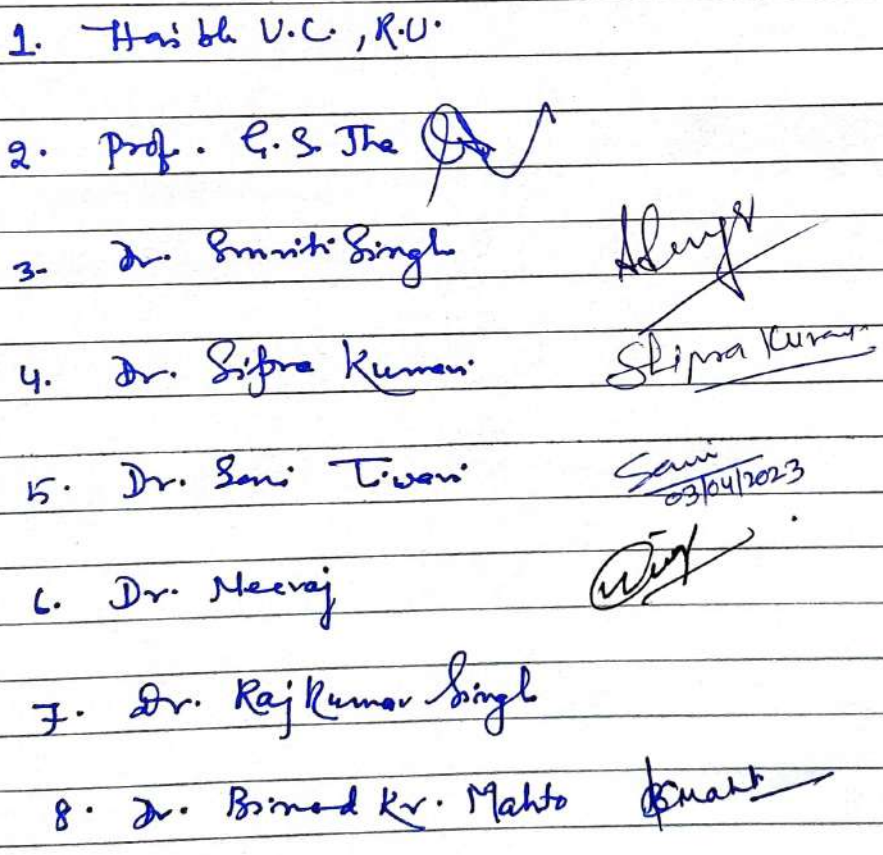 1. Hon'ble V.C., R.U.
2. Prof. G.S. Jha
3- Dr. Smriti Singh
4. Dr. Sipra Kumari Shipra Kumari
5. Dr. Soni Tiwari Soni 03/04/2023
6. Dr. Neeraj
7. Dr. Raj Kumar Singh
8. Dr. Binod Kr. Mahto BKMahto